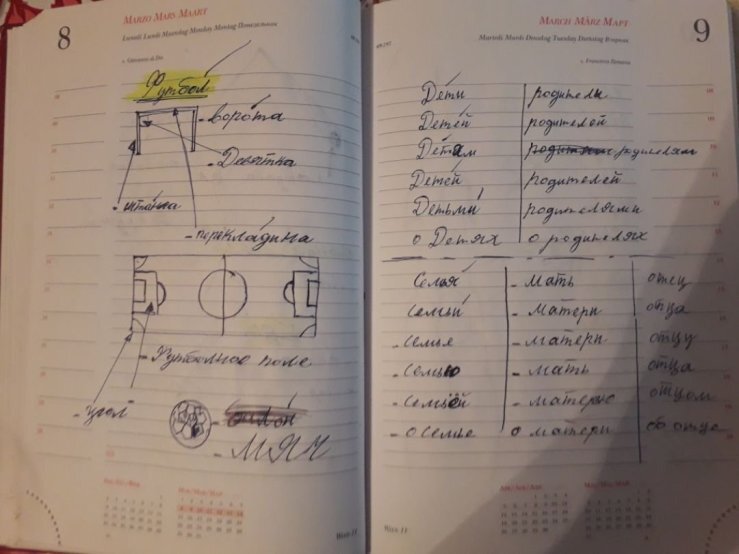 8
MARZO MARS MAART
Lunedì Lundi Maandag Monday Montag Понедельник
s. Giovanni di Dio
Футбол
- ворота
- Девятка
- штанга
- перекладина
- Футбольное поле
- угол
- МЯЧ
Week 11
MARCH MÄRZ МАРТ
9
Martedì Mardi Dinsdag Tuesday Dienstag Вторник
s. Francesca Romana
Дети родители
Детей родителей
Детям родителям
Детей родителей
Детьми родителями
о Детях о родителях
Семья - мать отец
семьи - матери отца
- семье - матери отцу
- семью - мать отца
- семьёй - матерью отцом
- о семье о матери об отце
Week 11